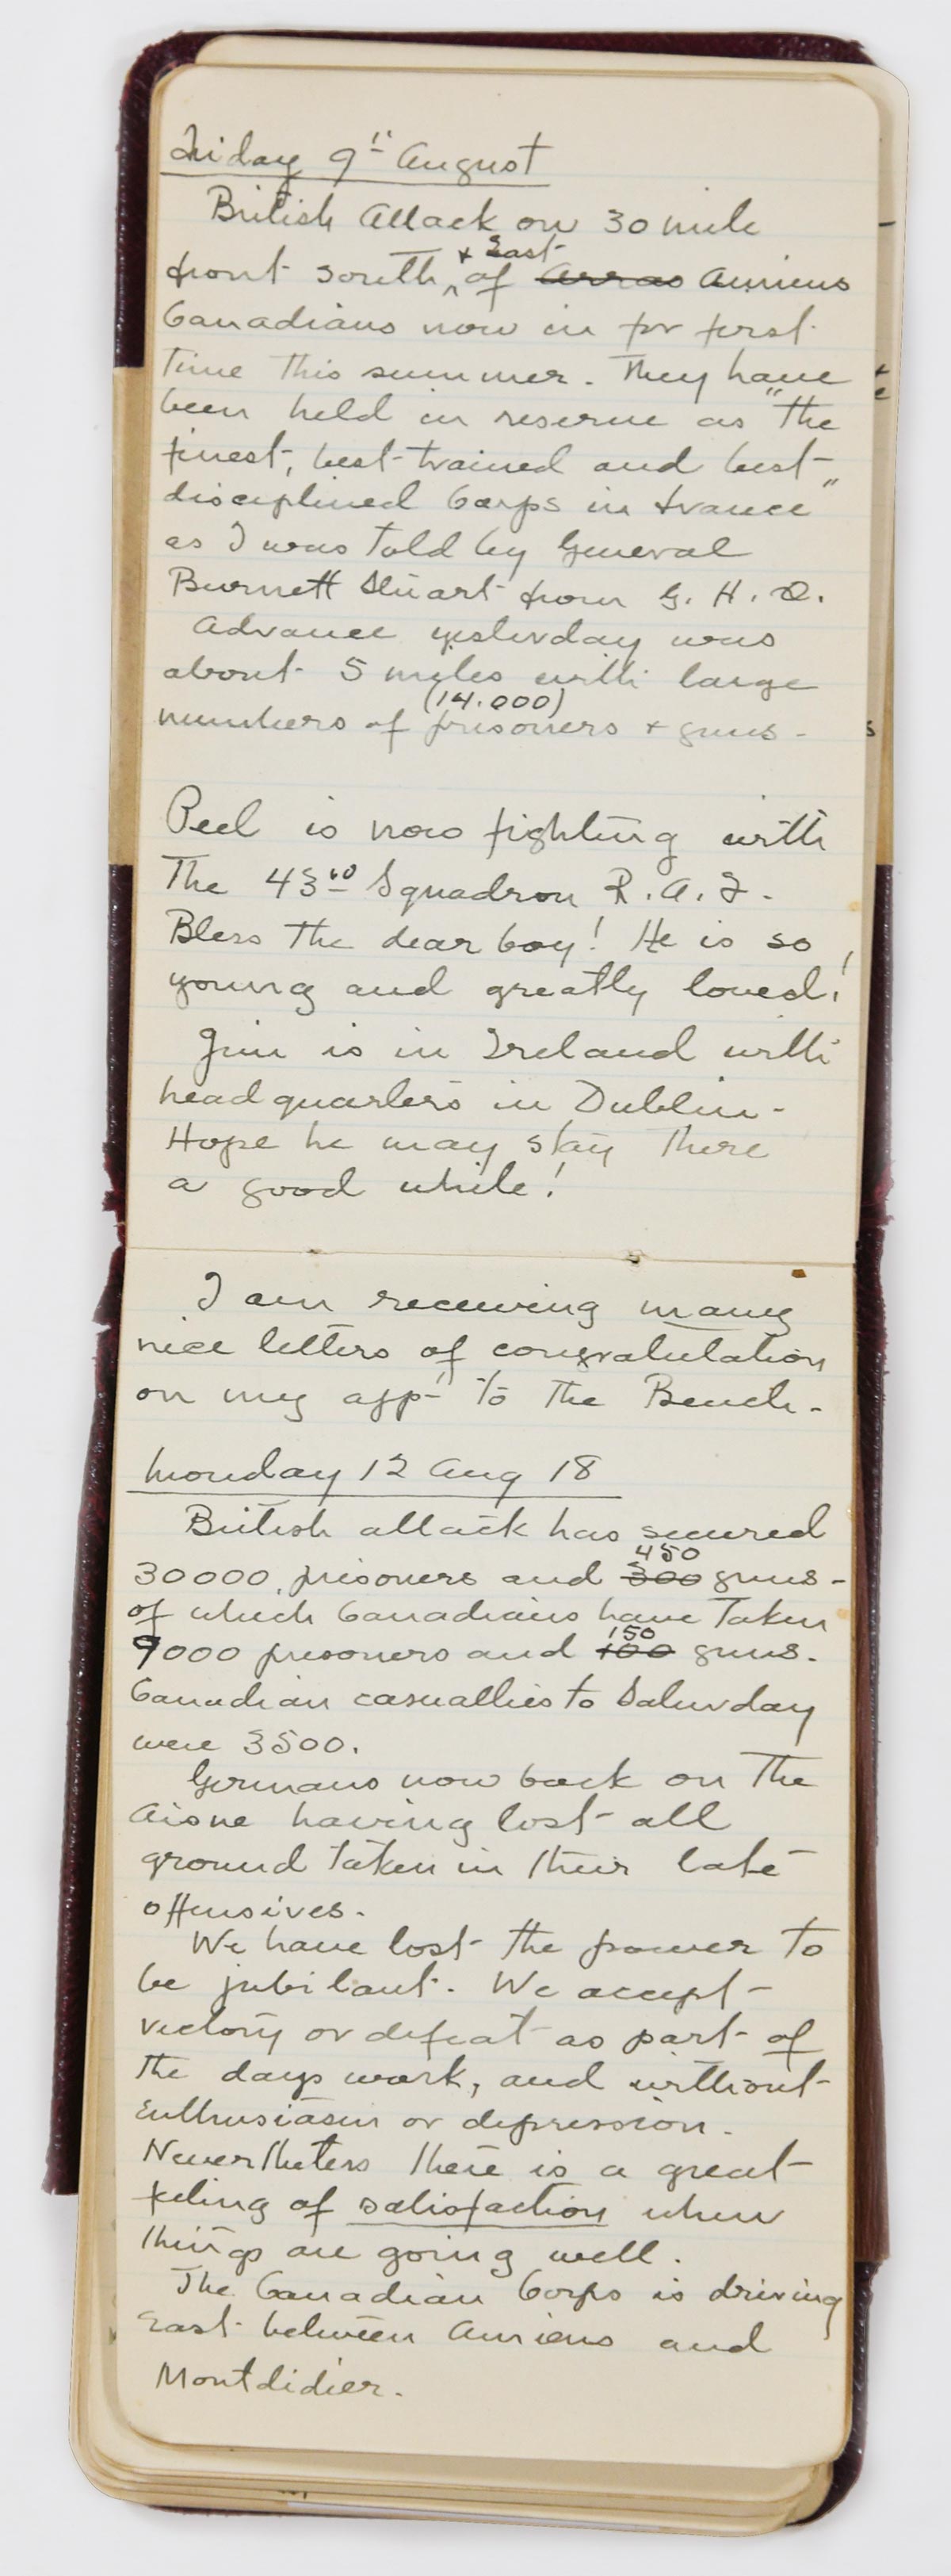 Friday 9th August
British Attack on 30 mile
front south ^ + East of ~~Arras~~ Amiens
Canadians now in for first
time this summer. They have
been held in reserve as "the
finest, best-trained and best-
disciplined Corps in France"
as I was told by General
Burnett Stuart from G. H. Q.
Advance yesterday was
about 5 miles with large
numbers of (14.000) prisoners + guns -
Peel is now fighting with
The 43rd Squadron R. A. F.
Bless the dear boy! He is so
young and greatly loved!
Jim is in Ireland with
headquarters in Dublin -
Hope he may stay there
a good while!
I am receiving many
nice letters of congratulation
on my appt to the Bench.
Monday 12 Aug 18
British attack has secured
30000 prisoners and ~~300~~ 450 guns -
of which Canadians have taken
9000 prisoners and ~~100~~ 150 guns.
Canadian casualties to Saturday
were 3500.
Germans now back on the
Aisne having lost all
ground taken in their late
offensives.
We have lost the power to
be jubilant. We accept
victory or defeat as part of
the days work, and without
enthusiasm or depression.
Nevertheless there is a great
feeling of satisfaction when
things are going well.
The Canadian Corps is driving
East between Amiens and
Montdidier.